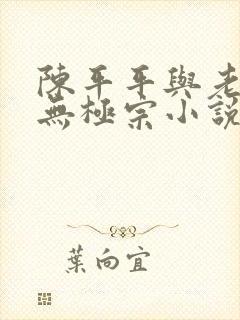 陳平平與老
無極宗小說
葉向宜